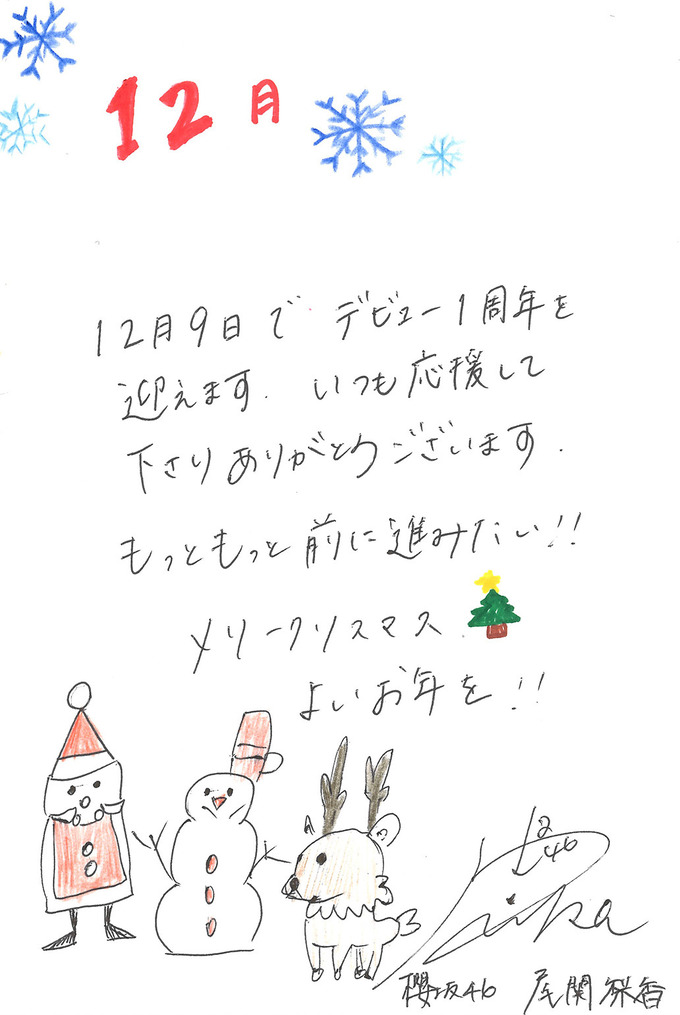 12月
12月9日で デビュー1周年を
迎えます. いつも応援して
下さりありがとうございます.
もっともっと前に進みたい!!
メリークリスマス
よいお年を!!
46
櫻坂46 尾関梨香